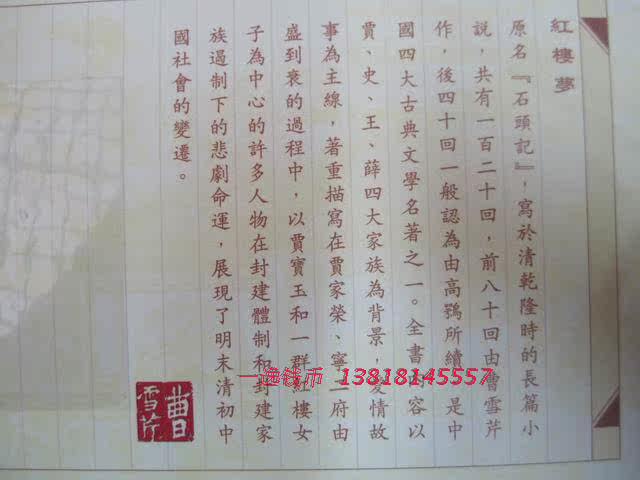 紅樓夢
原名『石頭記』，寫於清乾隆時的長篇小
説，共有一百二十回，前八十回由曹雪芹
作，後四十回一般認為由高鶚所續，是中
國四大古典文學名著之一。全書內容以
賈、史、王、薛四大家族為背景，愛情故
事為主線，著重描寫在賈家榮、寧二府由
盛到衰的過程中，以賈寶玉和一群紅樓女
子為中心的許多人物在封建體制和封建家
族遏制下的悲劇命運，展現了明末清初中
國社會的變遷。
曹雪芹
一逸钱币 13818145557